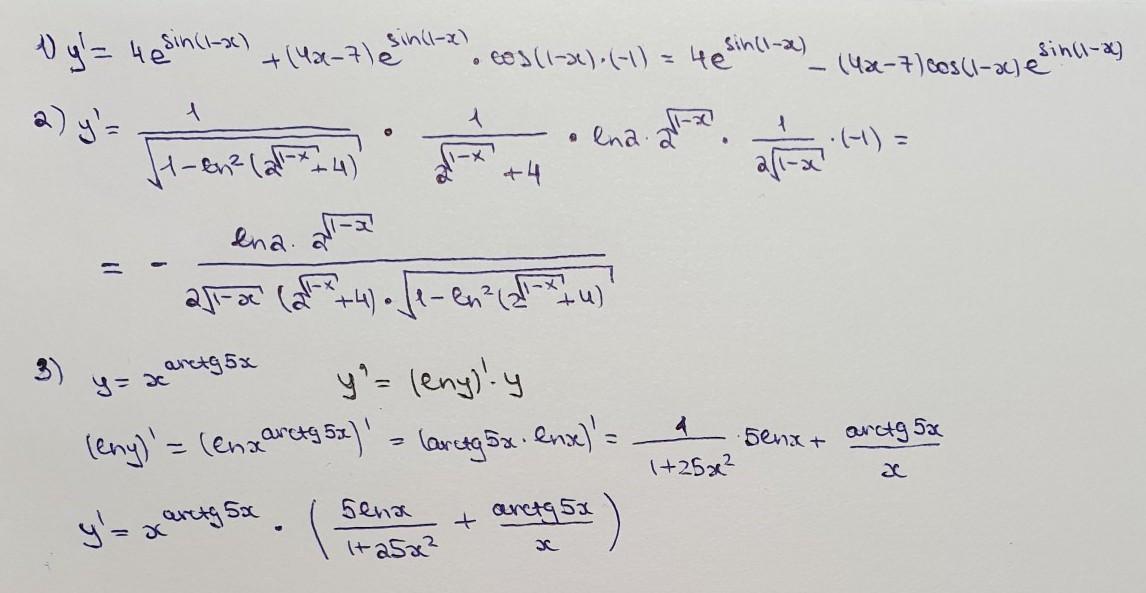 1) y' = 4e^{sin(1-x)} + (4x-7)e^{sin(1-x)} · cos(1-x)·(-1) = 4e^{sin(1-x)} - (4x-7)cos(1-x)e^{sin(1-x)}
2) y' = \frac{1}{\sqrt{1-ln²(2^{\sqrt{1-x}}+4)}} · \frac{1}{2^{\sqrt{1-x}}+4} · ln2·2^{\sqrt{1-x}} · \frac{1}{2\sqrt{1-x}} ·(-1) =
= - \frac{ln2·2^{\sqrt{1-x}}}{2\sqrt{1-x}(2^{\sqrt{1-x}}+4)·\sqrt{1-ln²(2^{\sqrt{1-x}}+4)}}
3) y = x^{arctg5x} y' = (lny)'·y
(lny)' = (lnx^{arctg5x})' = (arctg5x·lnx)' = \frac{1}{1+25x²} ·5lnx + \frac{arctg5x}{x}
y' = x^{arctg5x} · (\frac{5lnx}{1+25x²} + \frac{arctg5x}{x})